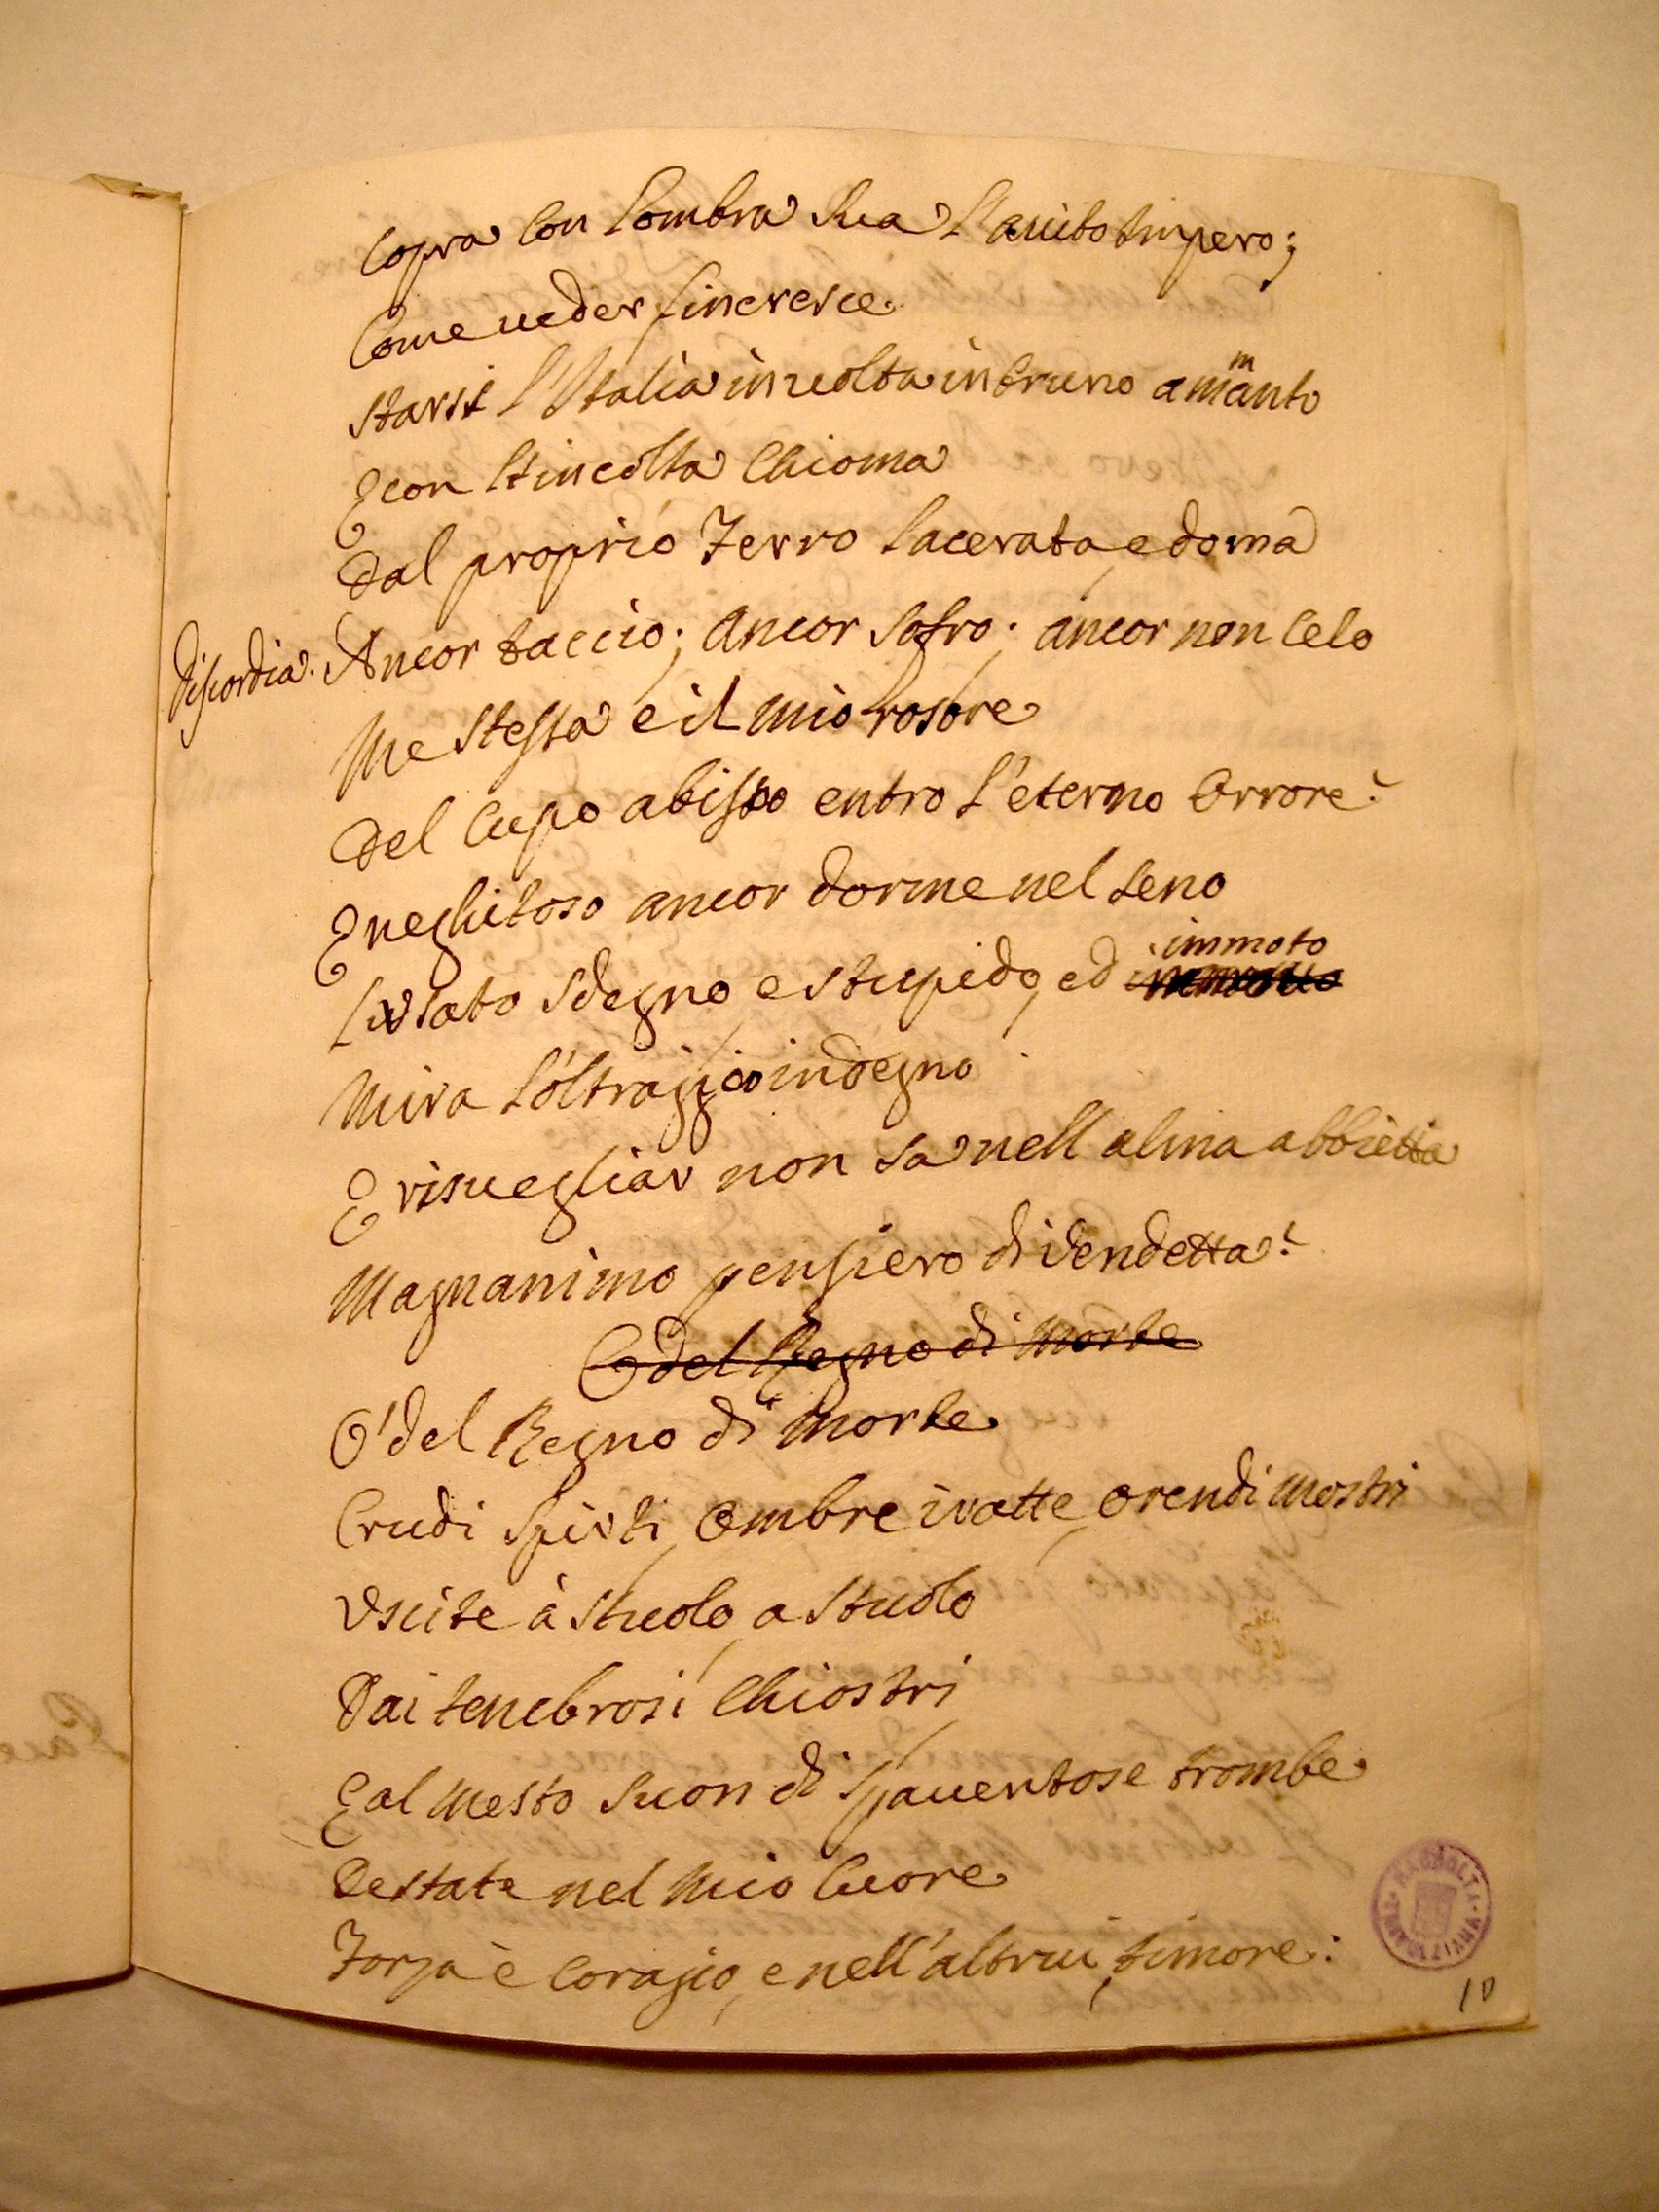 Copra con l'ombra sua l'auito Impero;
Come ueder s'increscie
starsi l'Italia inuolta in bruno ammanto
E con l'incolta Chioma
Dal proprio Ferro lacerata, e doma
Discordia. Ancor taccio; ancor sofro; ancor non celo
Me stessa e il mio rosore
Del Cupo abisso entro l'eterno Orrore?
E neghitoso ancor dorme nel seno
L'usato sdegno e stupido, ed immoto
Mira l'oltraggio indegno
E risuegliar non sa nell alma abbietta
Magnanimo pensiero di Vendetta?
O del Regno di Morte
O' del Regno di Morte
Crudi Spirti, Ombre iratte, orendi mostri
Uscite à stuolo, a stuolo
Dai tenebrosi Chiostri
E al mesto suon di spauentose trombe
Destate nel mio Cuore
Forza è Coragio, e nell'altrui, timore:
RACCOLTA
10